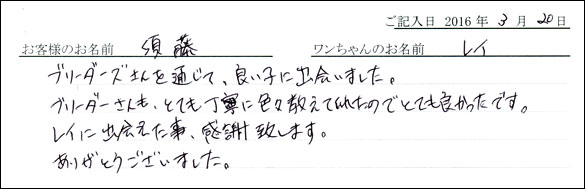 ご記入日 2016年 3月 20日
お客様のお名前 須藤 ワンちゃんのお名前 レイ
ブリーダーズさんを通じて、良い子に出会いました。
ブリーダーさんも、とても丁寧に色々教えてくれたのでとても良かったです。
レイに出会えた事、感謝致します。
ありがとうございました。